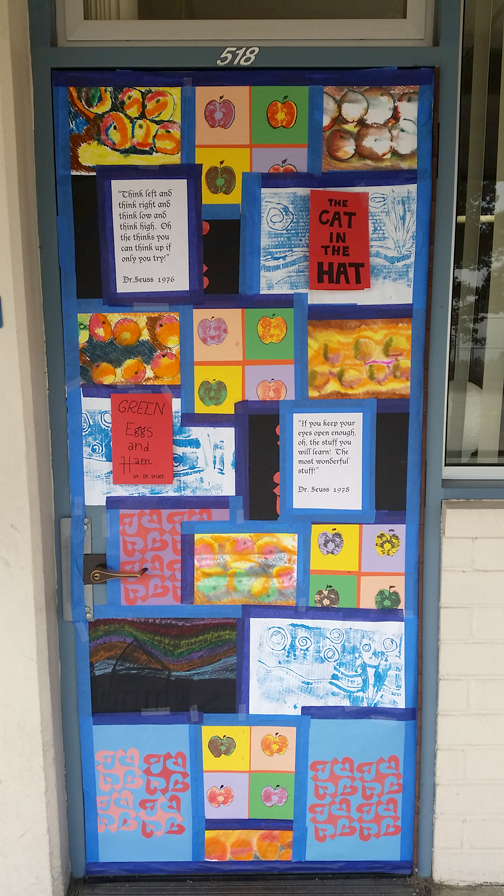 518
"Think left and
think right and
think low and
think high. Oh
the thinks you
can think up if
only you try!"
Dr. Seuss 1976
THE
CAT
IN
THE
HAT
GREEN
Eggs
and
Ham
"If you keep your
eyes open enough,
oh, the stuff you
will learn! The
most wonderful
stuff!"
Dr. Seuss 1978